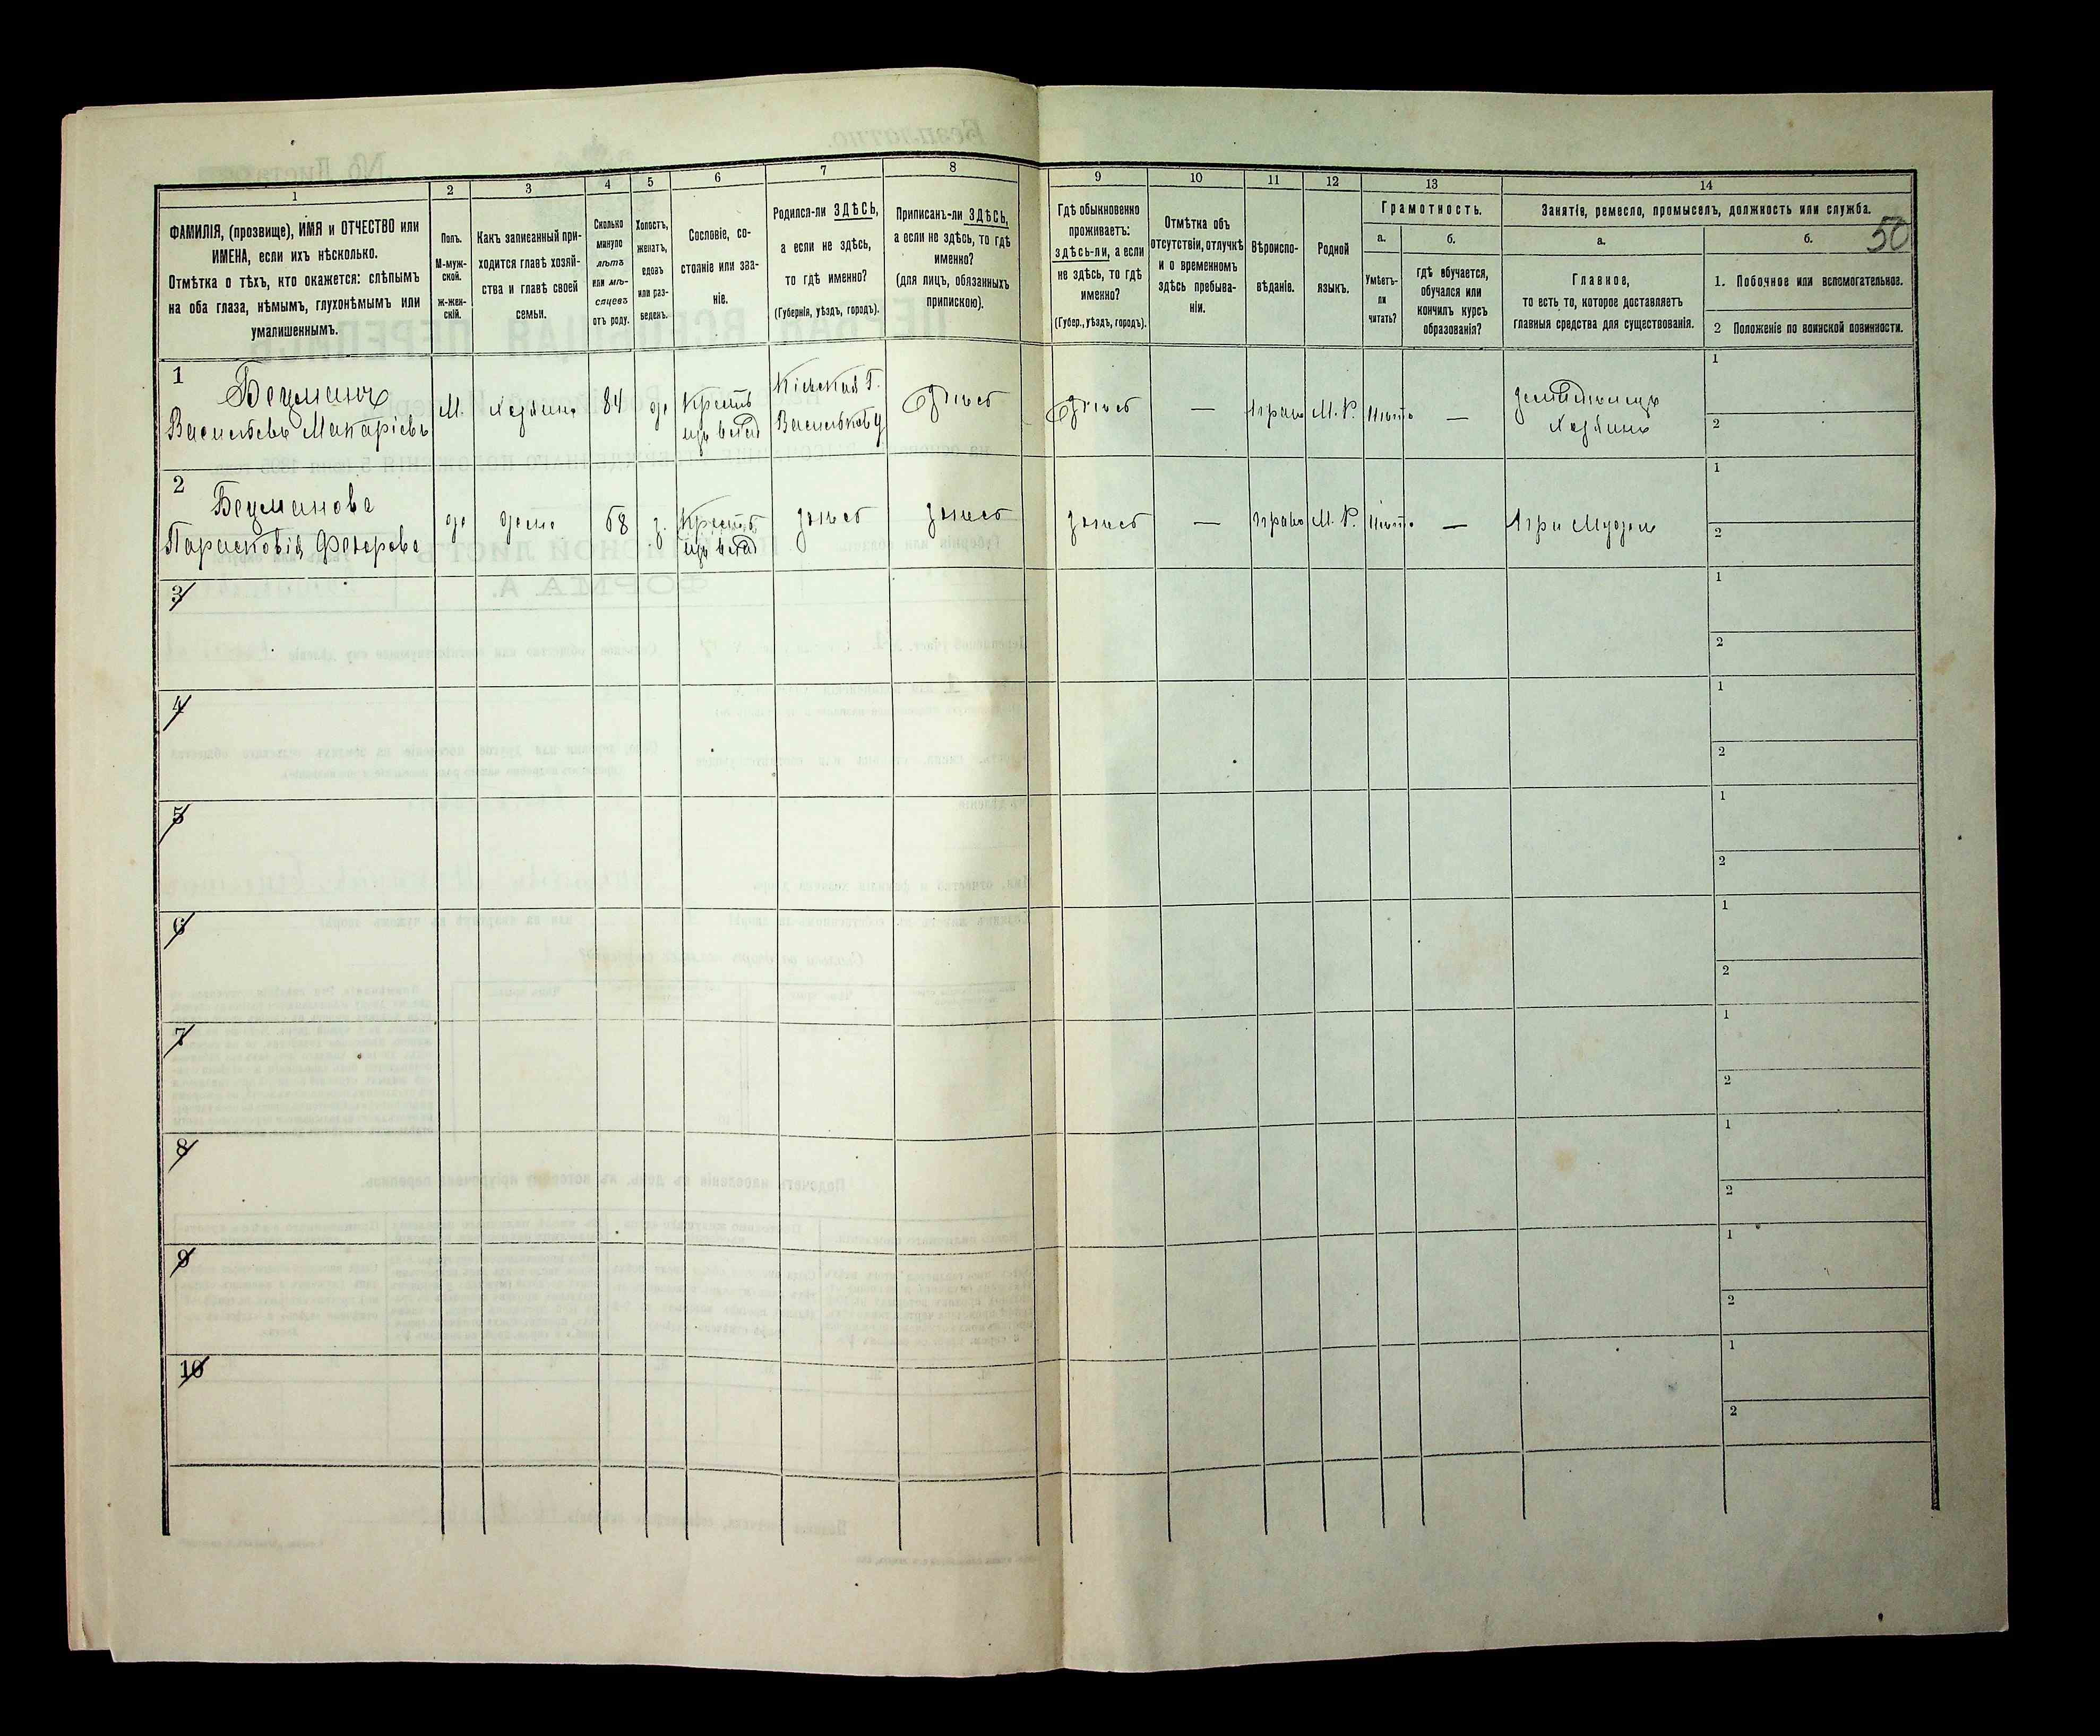 50
1
2
3
4
5
6
7
8
9
10
11
12
13
14
ФАМИЛІЯ, (прозвище), ИМЯ и ОТЧЕСТВО или
ИМЕНА, если ихъ нѣсколько.
Отмѣтка о тѣхъ, кто окажется: слѣпымъ
на оба глаза, нѣмымъ, глухонѣмымъ или
умалишеннымъ.
Полъ.
М-муж-
ской.
ж-жен-
скій.
Какъ записанный при-
ходится главѣ хозяй-
ства и главѣ своей
семьи.
Сколько
минуло
лѣтъ
или мѣ-
сяцевъ
отъ роду.
Холостъ,
женатъ,
вдовъ
или раз-
веденъ.
Сословіе, со-
стояніе или зва-
ніе.
Родился-ли ЗДѢСЬ,
а если не здѣсь,
то гдѣ именно?
(Губернія, уѣздъ, городъ).
Приписанъ-ли ЗДѢСЬ,
а если не здѣсь, то гдѣ
именно?
(для лицъ, обязанныхъ
припискою).
Гдѣ обыкновенно
проживаетъ:
здѣсь-ли, а если
не здѣсь, то гдѣ
именно?
(Губер., уѣздъ, городъ).
Отмѣтка объ
отсутствіи, отлучкѣ
и о временномъ
здѣсь пребыва-
ніи.
Вѣроиспо-
вѣданіе.
Родной
языкъ.
Грамотность.
а.
Умѣетъ-
ли
читать?
б.
гдѣ обучается,
обучался или
кончилъ курсъ
образованія?
Занятіе, ремесло, промыселъ, должность или служба.
а.
Главное,
то есть то, которое доставляетъ
главныя средства для существованія.
б.
1. Побочное или вспомогательное.
2 Положеніе по воинской повинности.
1
Бецманъ
Василѣевъ Макаріевъ
М.
хозяинъ
84
ж
Крестъ
изъ влад
Кіевская Г.
Васильков у
здѣсь
здѣсь
—
Право
М. Р.
Нѣтъ
—
хозяинъ
1
2
2
Бецманова
Парасковія Федорова
ж
жена
68
з.
Крестъ
изъ влад
здѣсь
здѣсь
здѣсь
—
Право
М. Р.
Нѣтъ
—
При мужѣ
1
2
3
1
2
4
1
2
5
1
2
6
1
2
7
1
2
8
1
2
9
1
2
10
1
2